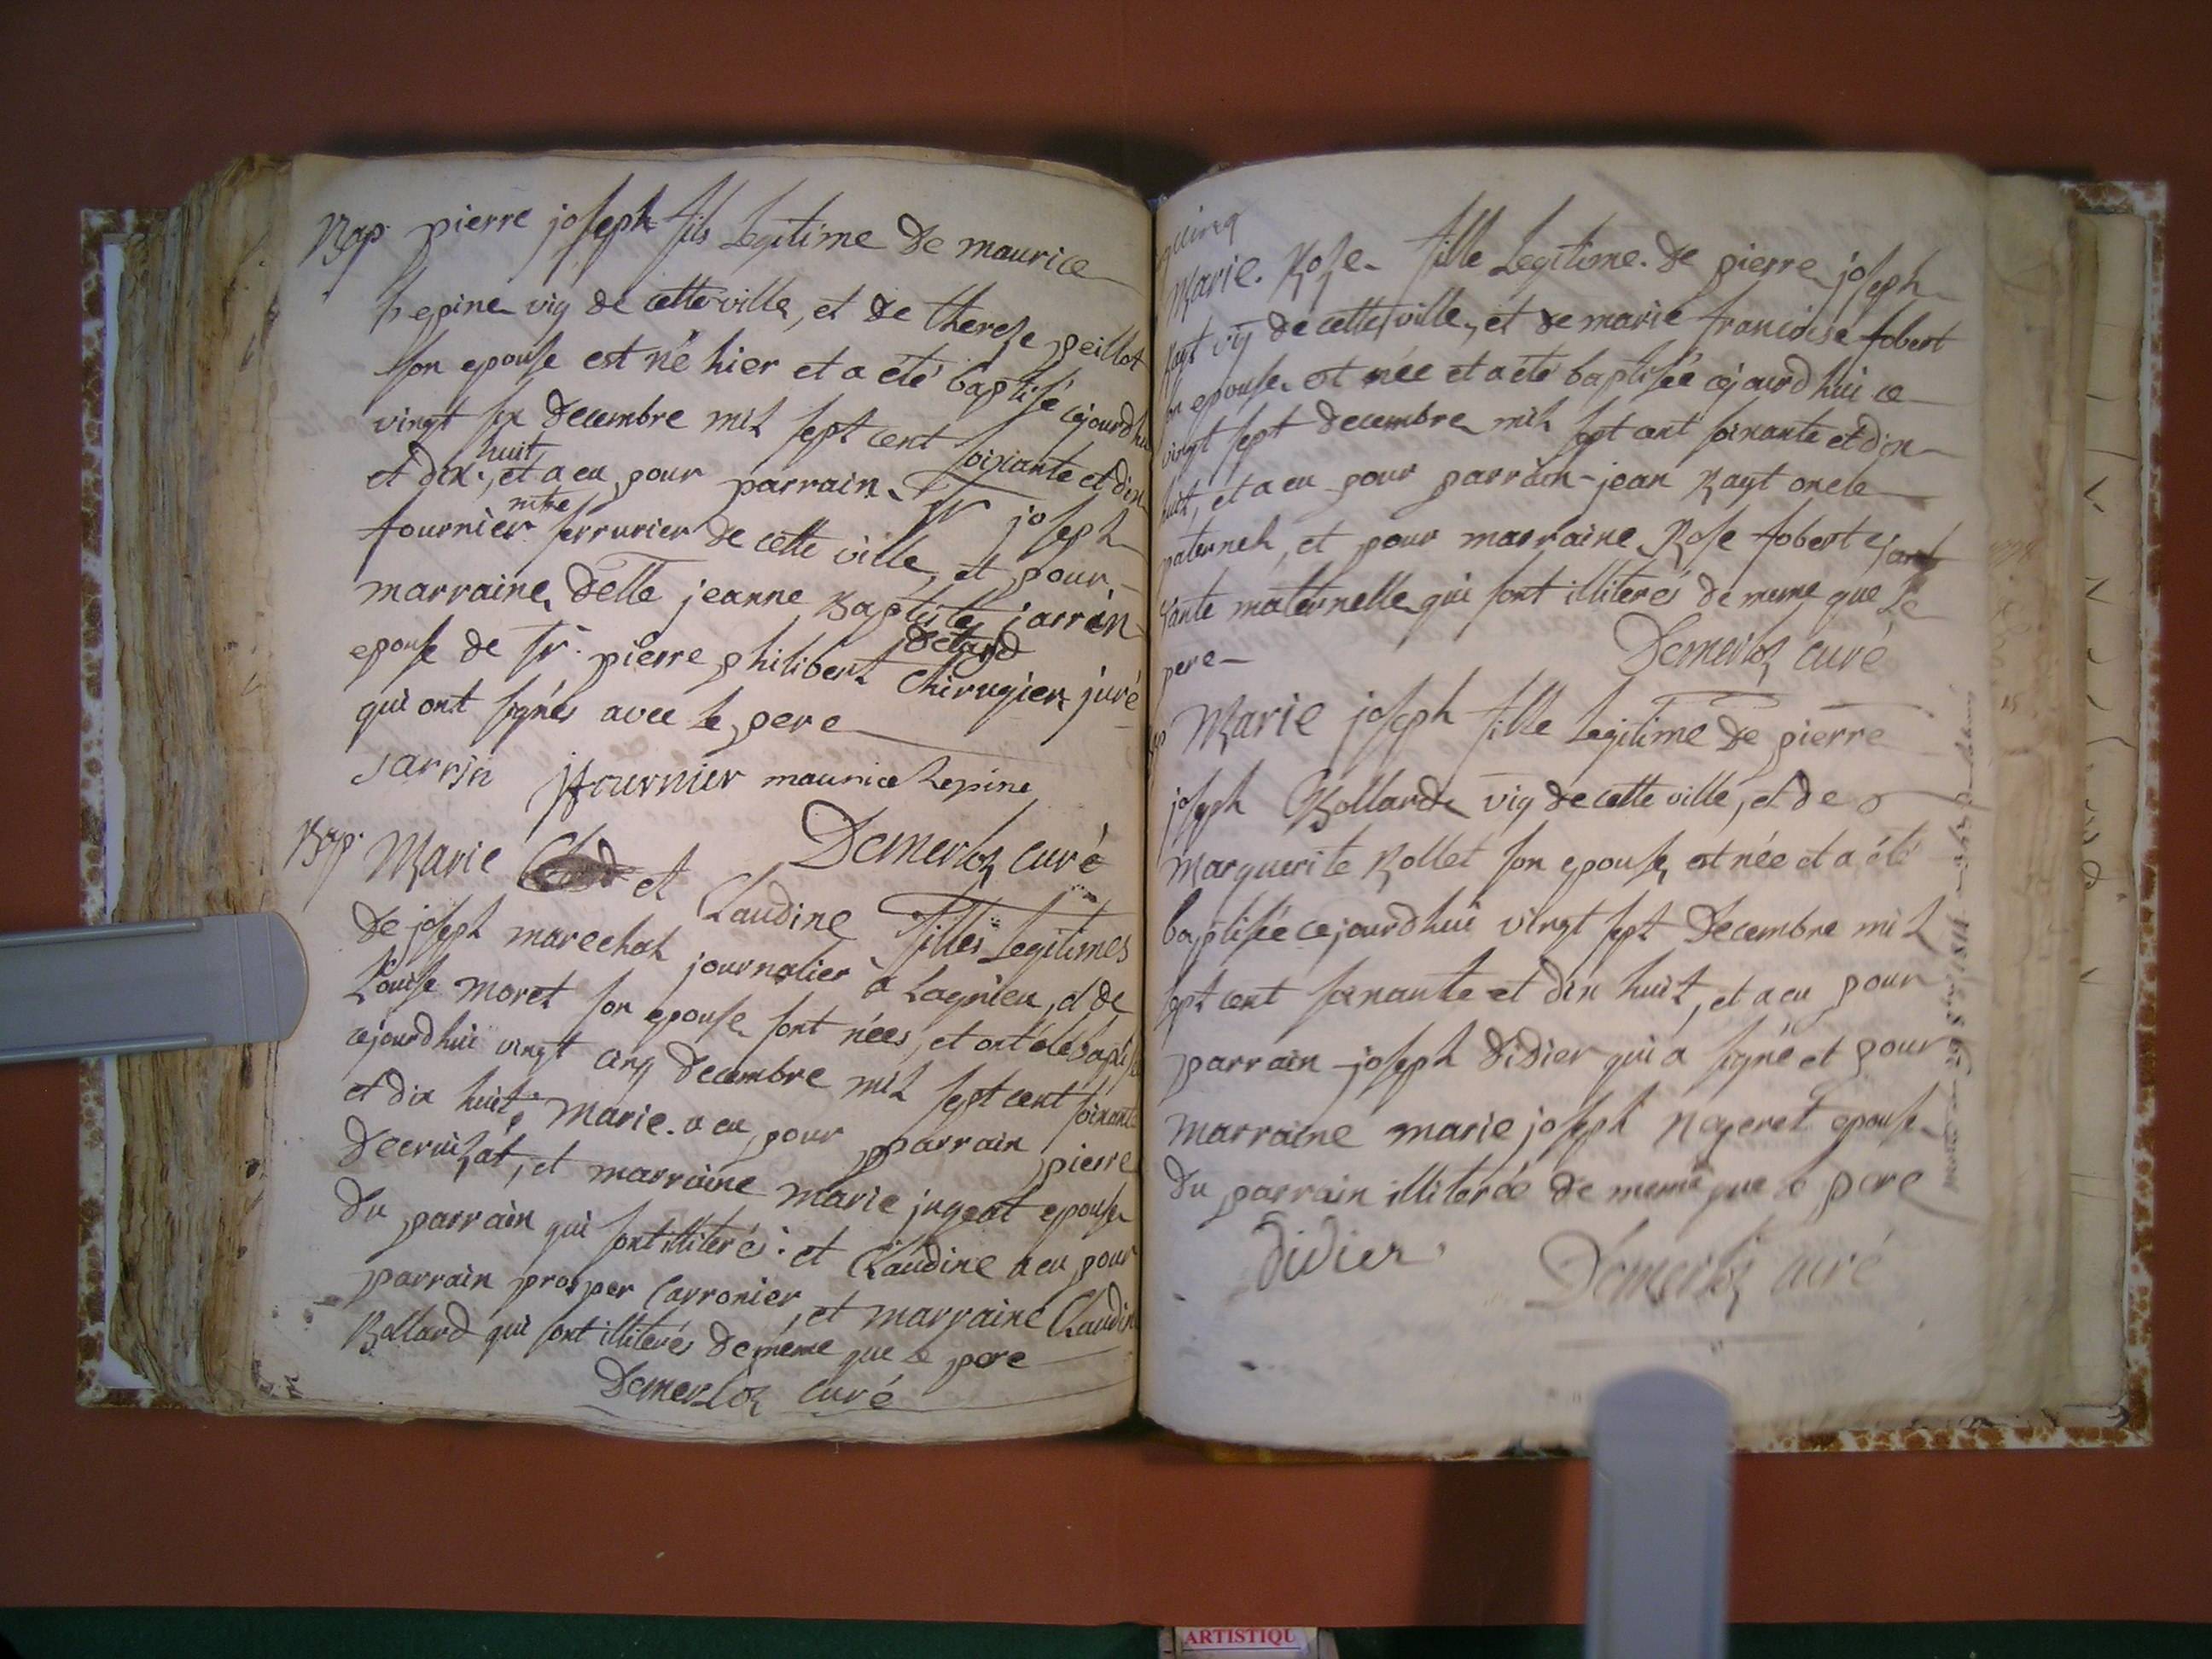 Bap. pierre joseph fils Legitime de maurice
Lepine vig de cette ville, et de therese peillot
son epouse est né hier et a été baptisé cejourdhui
vingt six decembre mil sept cent soixante et dix
huit
et dix, et a eu pour parrain Sr joseph
mtre
fournier serrurier de cette ville, et pour
marraine delle jeanne Baptiste jarrin
epouse de Sr. pierre philibert
chirugien juré
qui ont signés avec le pere
jarrin fournier maurice Lepine
Demerloz curé
Bap. Marie et Claudine filles Legitimes
de joseph marechal journalier à Lagnieu, et de
Louise Moret son epouse sont nées, et ont été bapti
cejourdhui vingt cinq decembre mil sept cent soixante
et dix huit, Marie a eu pour parrain pierre
Decruisat, et marraine marie jugeat epouse
du parrain qui sont illiterés: et Claudine a eu pour
parrain prosper Carronier, et marraine Claudine
Bollard qui sont illiterés de meme que le pere
Demerloz curé
Marie. Rose fille Legitime de pierre joseph
Rayt vig de cette ville, et de marie francoise fobert
son epouse est née et a été baptisée cejourdhui ce
vingt sept decembre mil sept cent soixante et dix
huit, et a eu pour parrain jean Rayt oncle
paternel, et pour marraine Rose fobert
tante maternelle qui sont illiterés de meme que le
pere
Demerloz curé
Marie joseph fille Legitime de pierre
joseph Bollard vig de cette ville, et de
Marguerite Rollet son epouse est née et a été
baptisée cejourdhui vingt sept decembre mil
sept cent soixante et dix huit, et a eu pour
parrain joseph didier qui a signé et pour
marraine marie joseph Nageret epouse
du parrain illiterée de meme que le pere
didier
Demerloz curé
ARTISTIQU